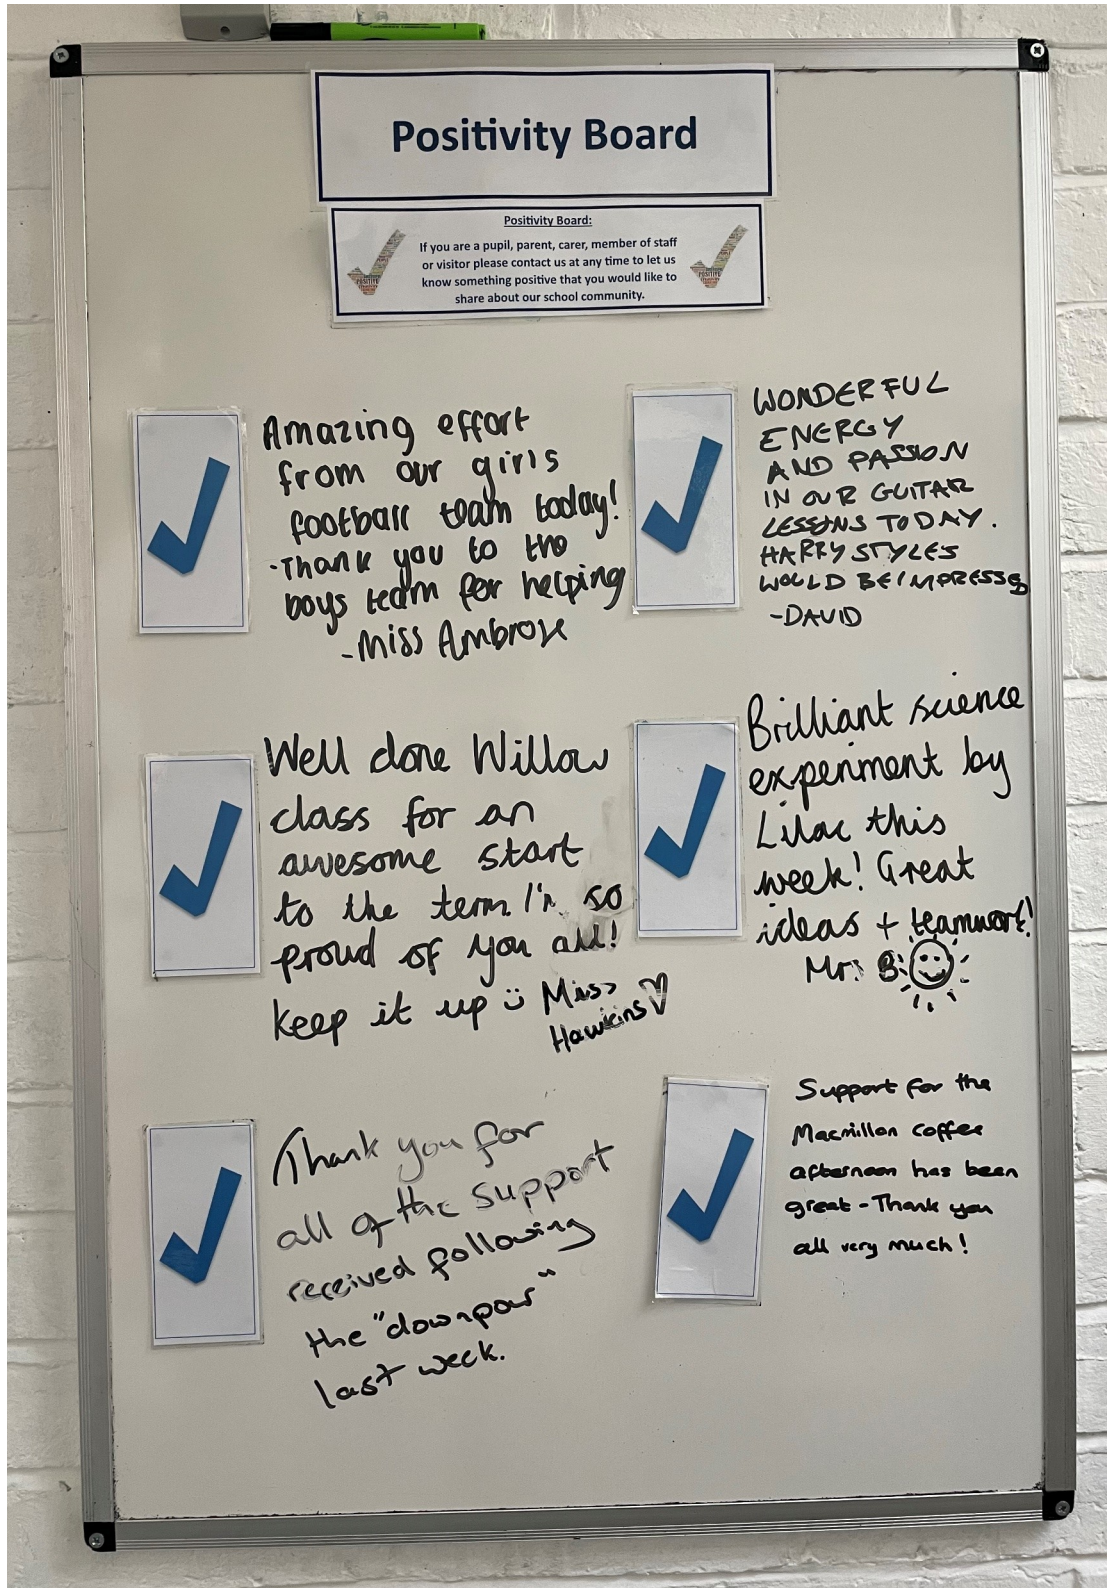 Positivity Board
Positivity Board:
If you are a pupil, parent, carer, member of staff
or visitor please contact us at any time to let us
know something positive that you would like to
share about our school community.
Amazing effort
from our girls
football team today!
Thank you to the
boys team for helping
- Miss Ambrose
WONDERFUL
ENERGY
AND PASSION
IN OUR GUITAR
LESSONS TODAY.
HARRY STYLES
WOULD BE IMPRESSED
-DAVID
Well done Willow
class for an
awesome start
to the term. I'm so
proud of you all!
keep it up Miss
Hawkins
Brilliant science
experiment by
Lilac this
week! Great
ideas + teamwork!
Mrs B
Thank you for
all of the support
received following
the "downpour"
last week.
Support for the
Macmillan coffee
afternoon has been
great - Thank you
all very much!